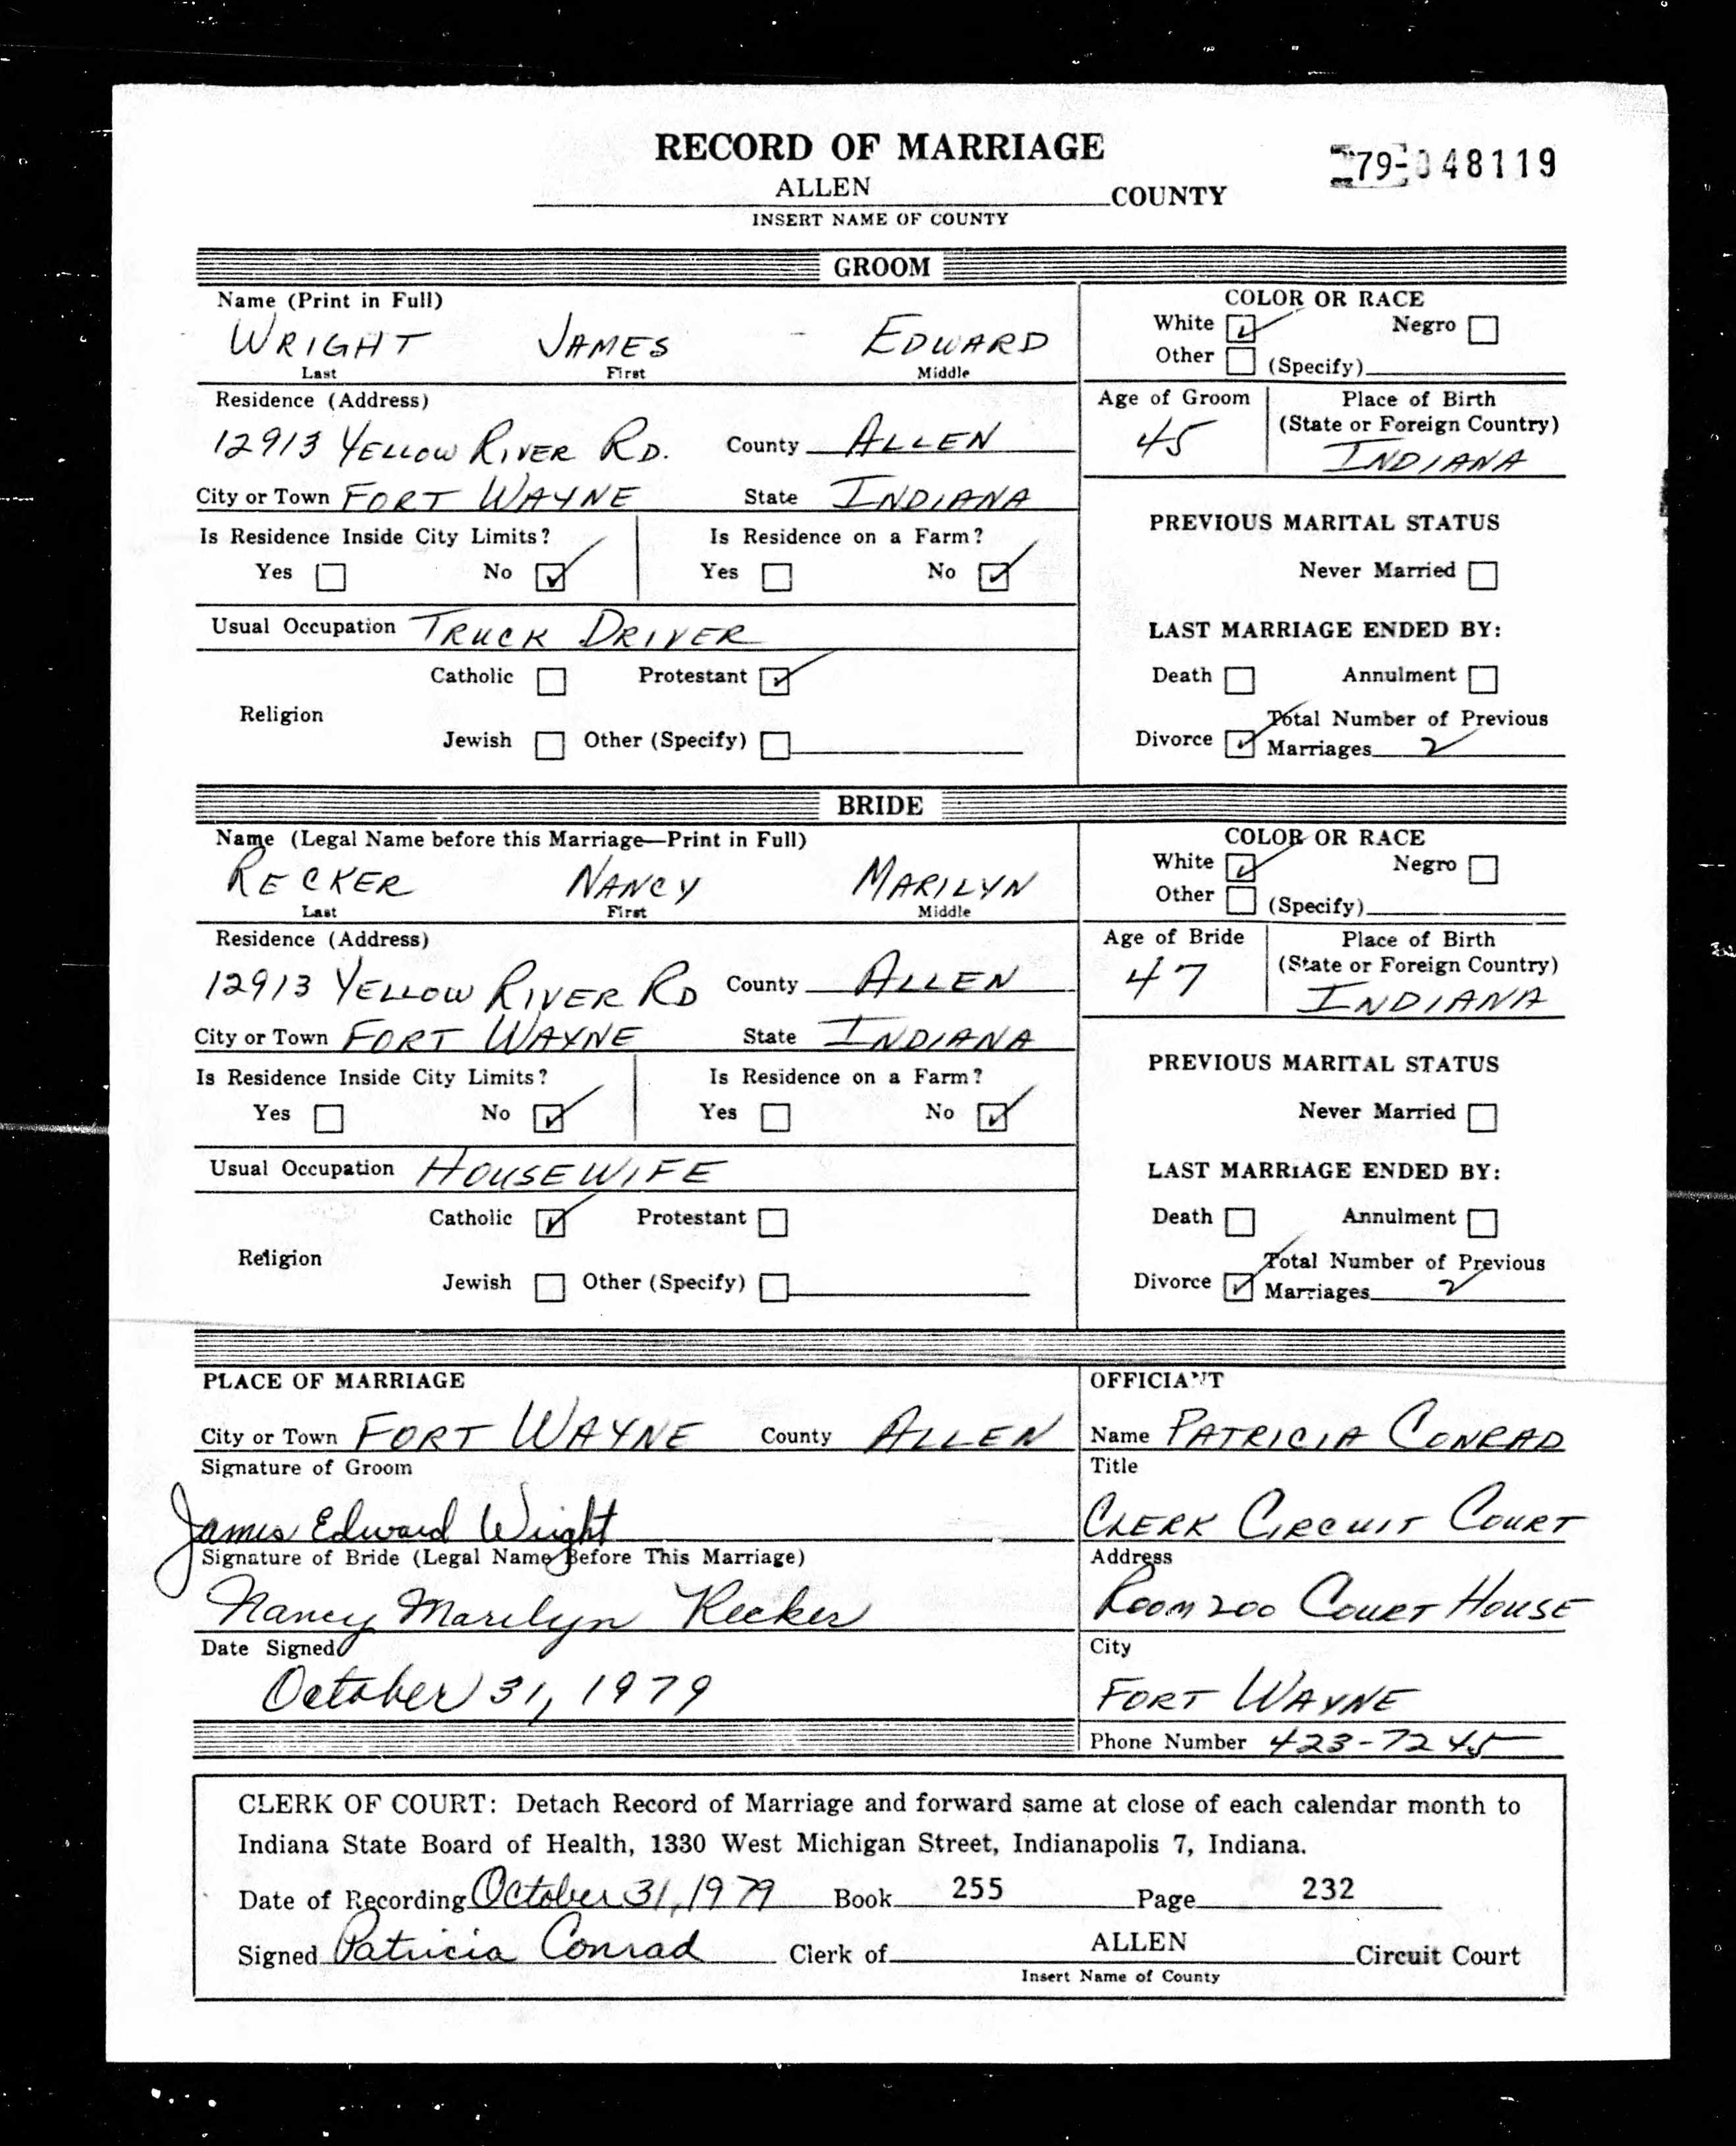 RECORD OF MARRIAGE
79-048119
ALLEN COUNTY
INSERT NAME OF COUNTY
GROOM
Name (Print in Full)
WRIGHT JAMES EDWARD
Last First Middle
COLOR OR RACE
White ☑ Negro ☐
Other ☐ (Specify)
Residence (Address)
12913 YELLOW RIVER RD. County ALLEN
City or Town FORT WAYNE State INDIANA
Age of Groom
45
Place of Birth
(State or Foreign Country)
INDIANA
Is Residence Inside City Limits?
Yes ☐ No ☑
Is Residence on a Farm?
Yes ☐ No ☑
Usual Occupation TRUCK DRIVER
Catholic ☐ Protestant ☑
Religion
Jewish ☐ Other (Specify) ☐
PREVIOUS MARITAL STATUS
Never Married ☐
LAST MARRIAGE ENDED BY:
Death ☐ Annulment ☐
Divorce ☑ Total Number of Previous
Marriages 2
BRIDE
Name (Legal Name before this Marriage—Print in Full)
RECKER NANCY MARILYN
Last First Middle
COLOR OR RACE
White ☑ Negro ☐
Other ☐ (Specify)
Residence (Address)
12913 YELLOW RIVER RD County ALLEN
City or Town FORT WAYNE State INDIANA
Age of Bride
47
Place of Birth
(State or Foreign Country)
INDIANA
Is Residence Inside City Limits?
Yes ☐ No ☑
Is Residence on a Farm?
Yes ☐ No ☑
Usual Occupation HOUSEWIFE
Catholic ☑ Protestant ☐
Religion
Jewish ☐ Other (Specify) ☐
PREVIOUS MARITAL STATUS
Never Married ☐
LAST MARRIAGE ENDED BY:
Death ☐ Annulment ☐
Divorce ☑ Total Number of Previous
Marriages 2
PLACE OF MARRIAGE
City or Town FORT WAYNE County ALLEN
Signature of Groom
James Edward Wright
Signature of Bride (Legal Name Before This Marriage)
Nancy Marilyn Recker
Date Signed
October 31, 1979
OFFICIANT
Name PATRICIA CONRAD
Title
CLERK CIRCUIT COURT
Address
ROOM 200 COURT HOUSE
City
FORT WAYNE
Phone Number 423-7245
CLERK OF COURT: Detach Record of Marriage and forward same at close of each calendar month to
Indiana State Board of Health, 1330 West Michigan Street, Indianapolis 7, Indiana.
Date of Recording October 31, 1979 Book 255 Page 232
Signed Patricia Conrad Clerk of ALLEN Circuit Court
Insert Name of County